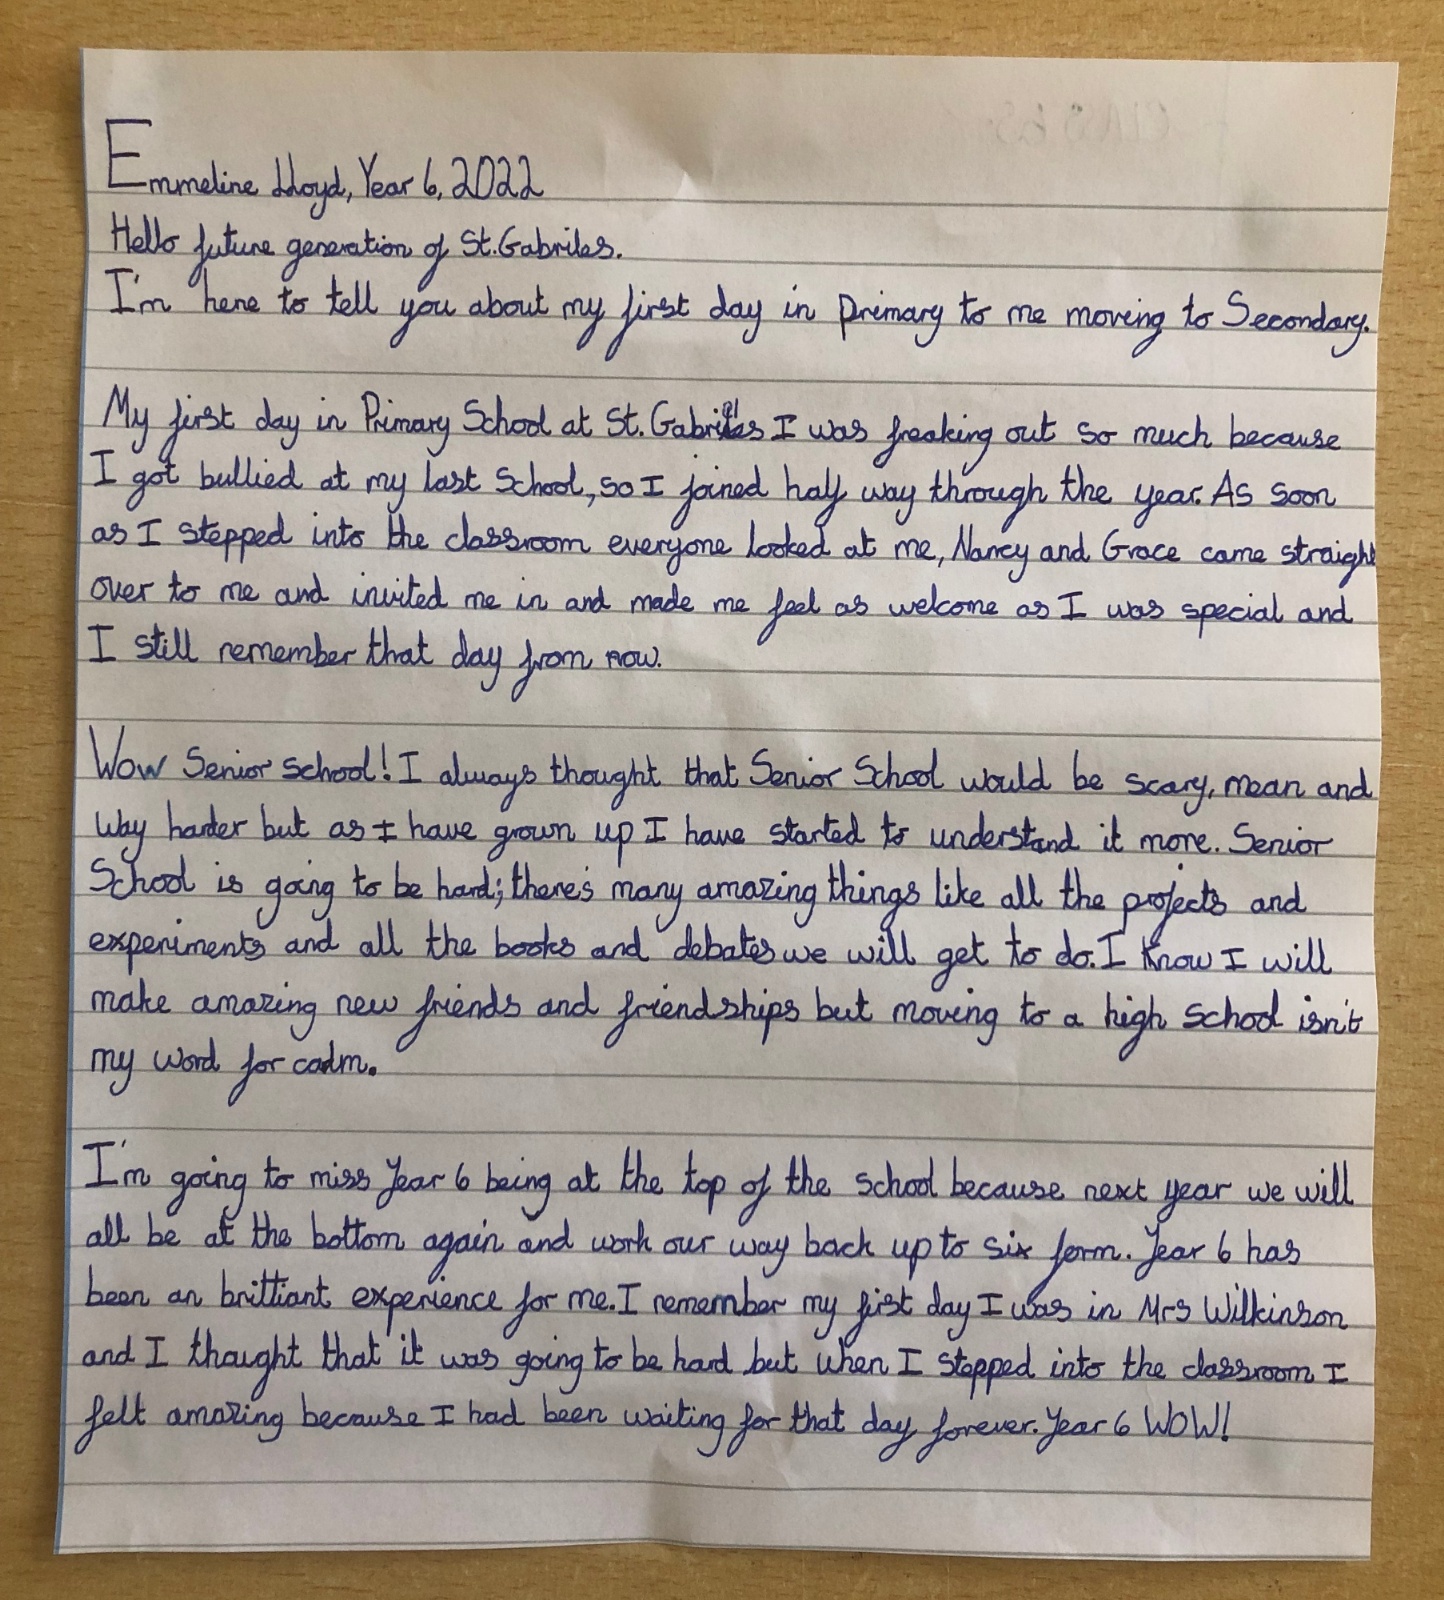 Emmeline Lloyd, Year 6, 2022
Hello future generation of St. Gabriles.
I'm here to tell you about my first day in primary to me moving to Secondary.
My first day in Primary School at St. Gabriles I was freaking out so much because
I got bullied at my last School, so I joined half way through the year. As soon
as I stepped into the classroom everyone looked at me, Nancy and Grace came straight
over to me and invited me in and made me feel as welcome as I was special and
I still remember that day from now.
Wow Senior School! I always thought that Senior School would be scary, mean and
way harder but as I have grown up I have started to understand it more. Senior
School is going to be hard; there's many amazing things like all the projects and
experiments and all the books and debates we will get to do. I know I will
make amazing new friends and friendships but moving to a high School isn't
my word for calm.
I'm going to miss Year 6 being at the top of the school because next year we will
all be at the bottom again and work our way back up to six form. Year 6 has
been an brilliant experience for me. I remember my first day I was in Mrs Wilkinson
and I thought that it was going to be hard but when I stepped into the classroom I
felt amazing because I had been waiting for that day forever. Year 6 WOW!